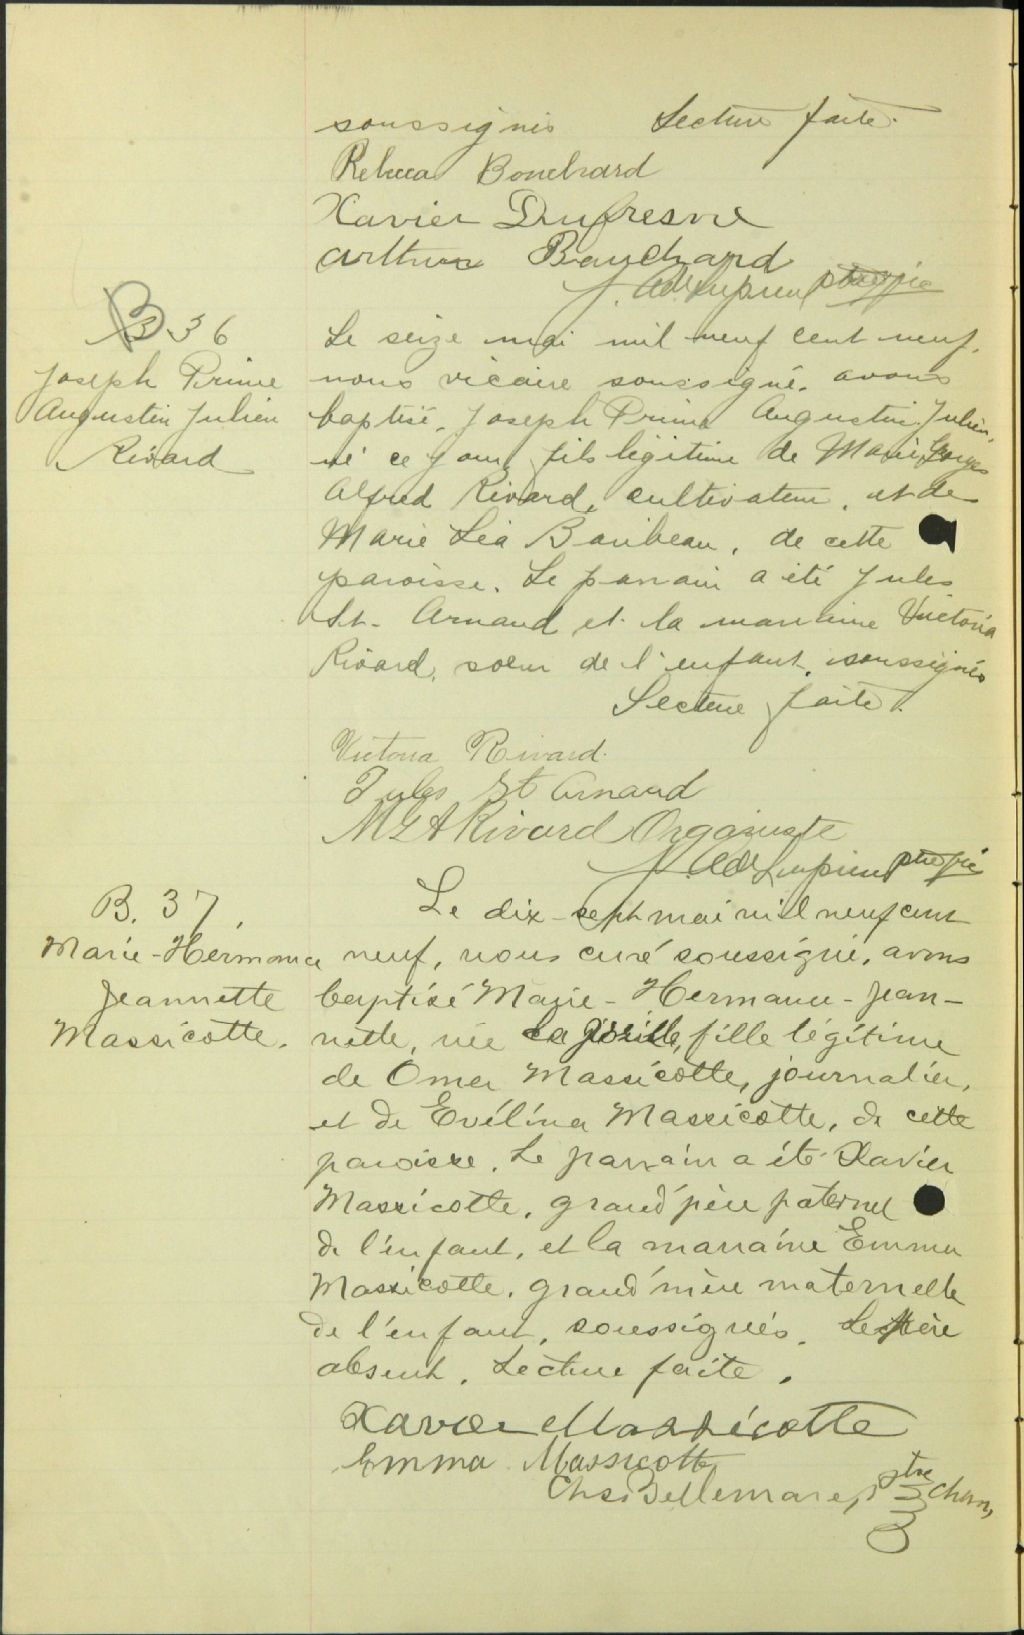 soussignés Lecture faite.
Rebecca Bouchard
Xavier Dufresne
Arthur Bouchard
J. Ad Lupien ptre vic
B 36
Joseph Prime
Augustin Julien
Rivard
Le seize mai mil neuf cent neuf,
nous vicaire soussigné, avons
baptisé, Joseph Prime Augustin Julien,
né ce jour, fils légitime de Marie Georges
Alfred Rivard, cultivateur, et de
Marie Léa Baribeau, de cette
paroisse. Le parrain a été Jules
St-Arnaud et la marraine Victoria
Rivard, soeur de l'enfant, soussignés
Lecture faite.
Victoria Rivard.
Jules St Arnaud
M G A Rivard Organiste
J. Ad Lupien ptre vic
B. 37.
Marie-Hermance
Jeannette
Massicotte.
Le dix-sept mai mil neuf cent
neuf, nous curé soussigné, avons
baptisé Marie-Hermance-Jean-
nette, née la veille, fille légitime
de Omer Massicotte, journalier,
et de Evélina Massicotte, de cette
paroisse. Le parrain a été Xavier
Massicotte, grand'père paternel
de l'enfant, et la marraine Emma
Massicotte, grand'mère maternelle
de l'enfant, soussignés. Le père
absent. Lecture faite.
Xavier Massicotte
Emma Massicotte
Chs Bellemare, Ptre Chan,